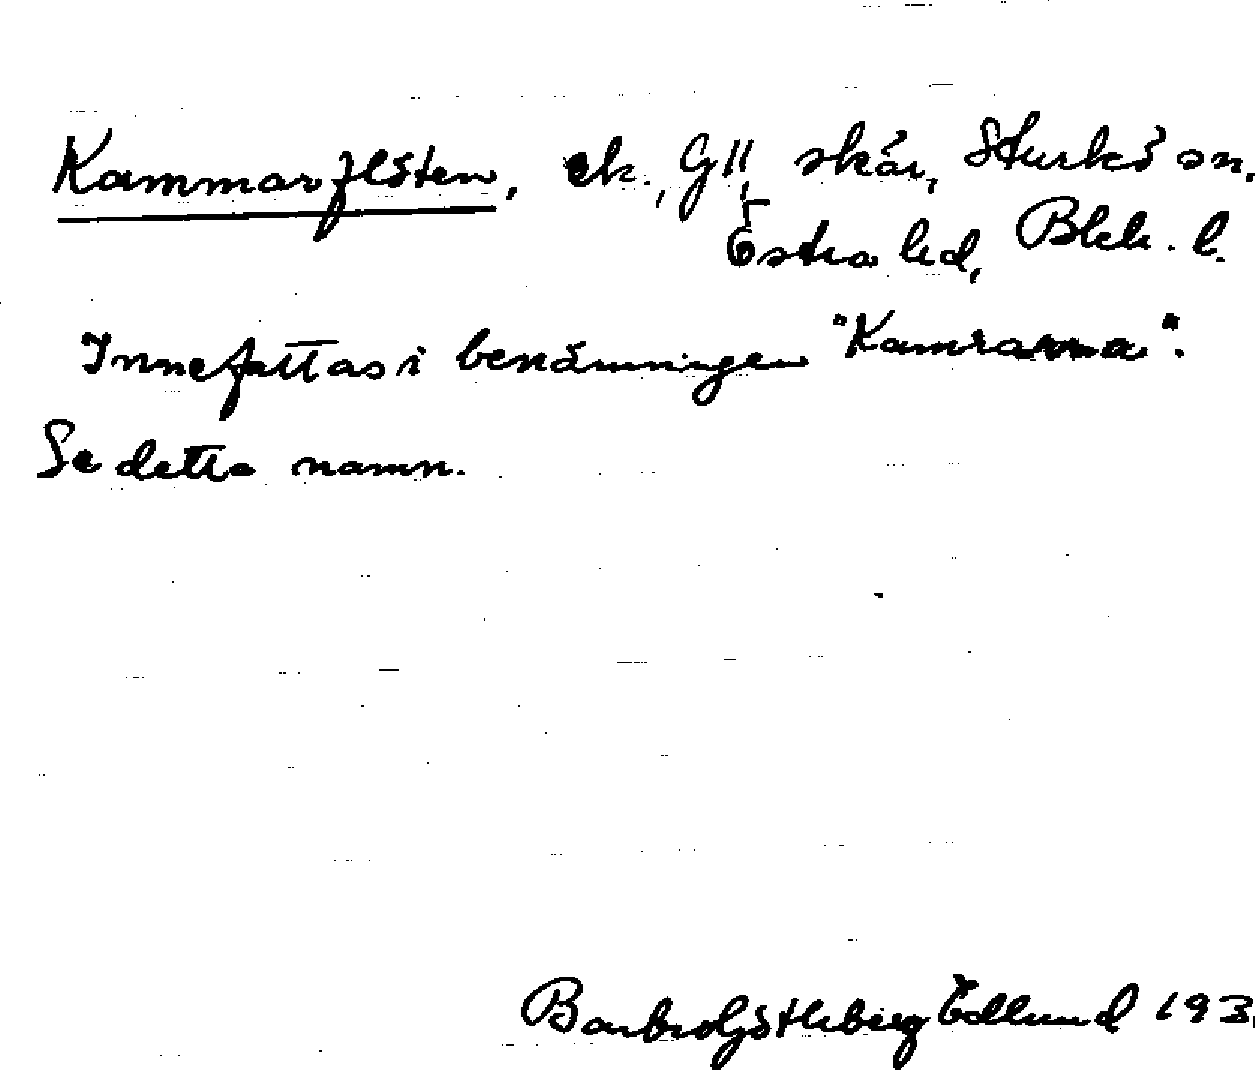 Kammarflöten, ek., G 11, skär, Sturkö sn,
Östra hd, Blek. l.
Innefattas i benämningen "Kamrarna".
Se detta namn.
Barbro Götleberg Edlund 193